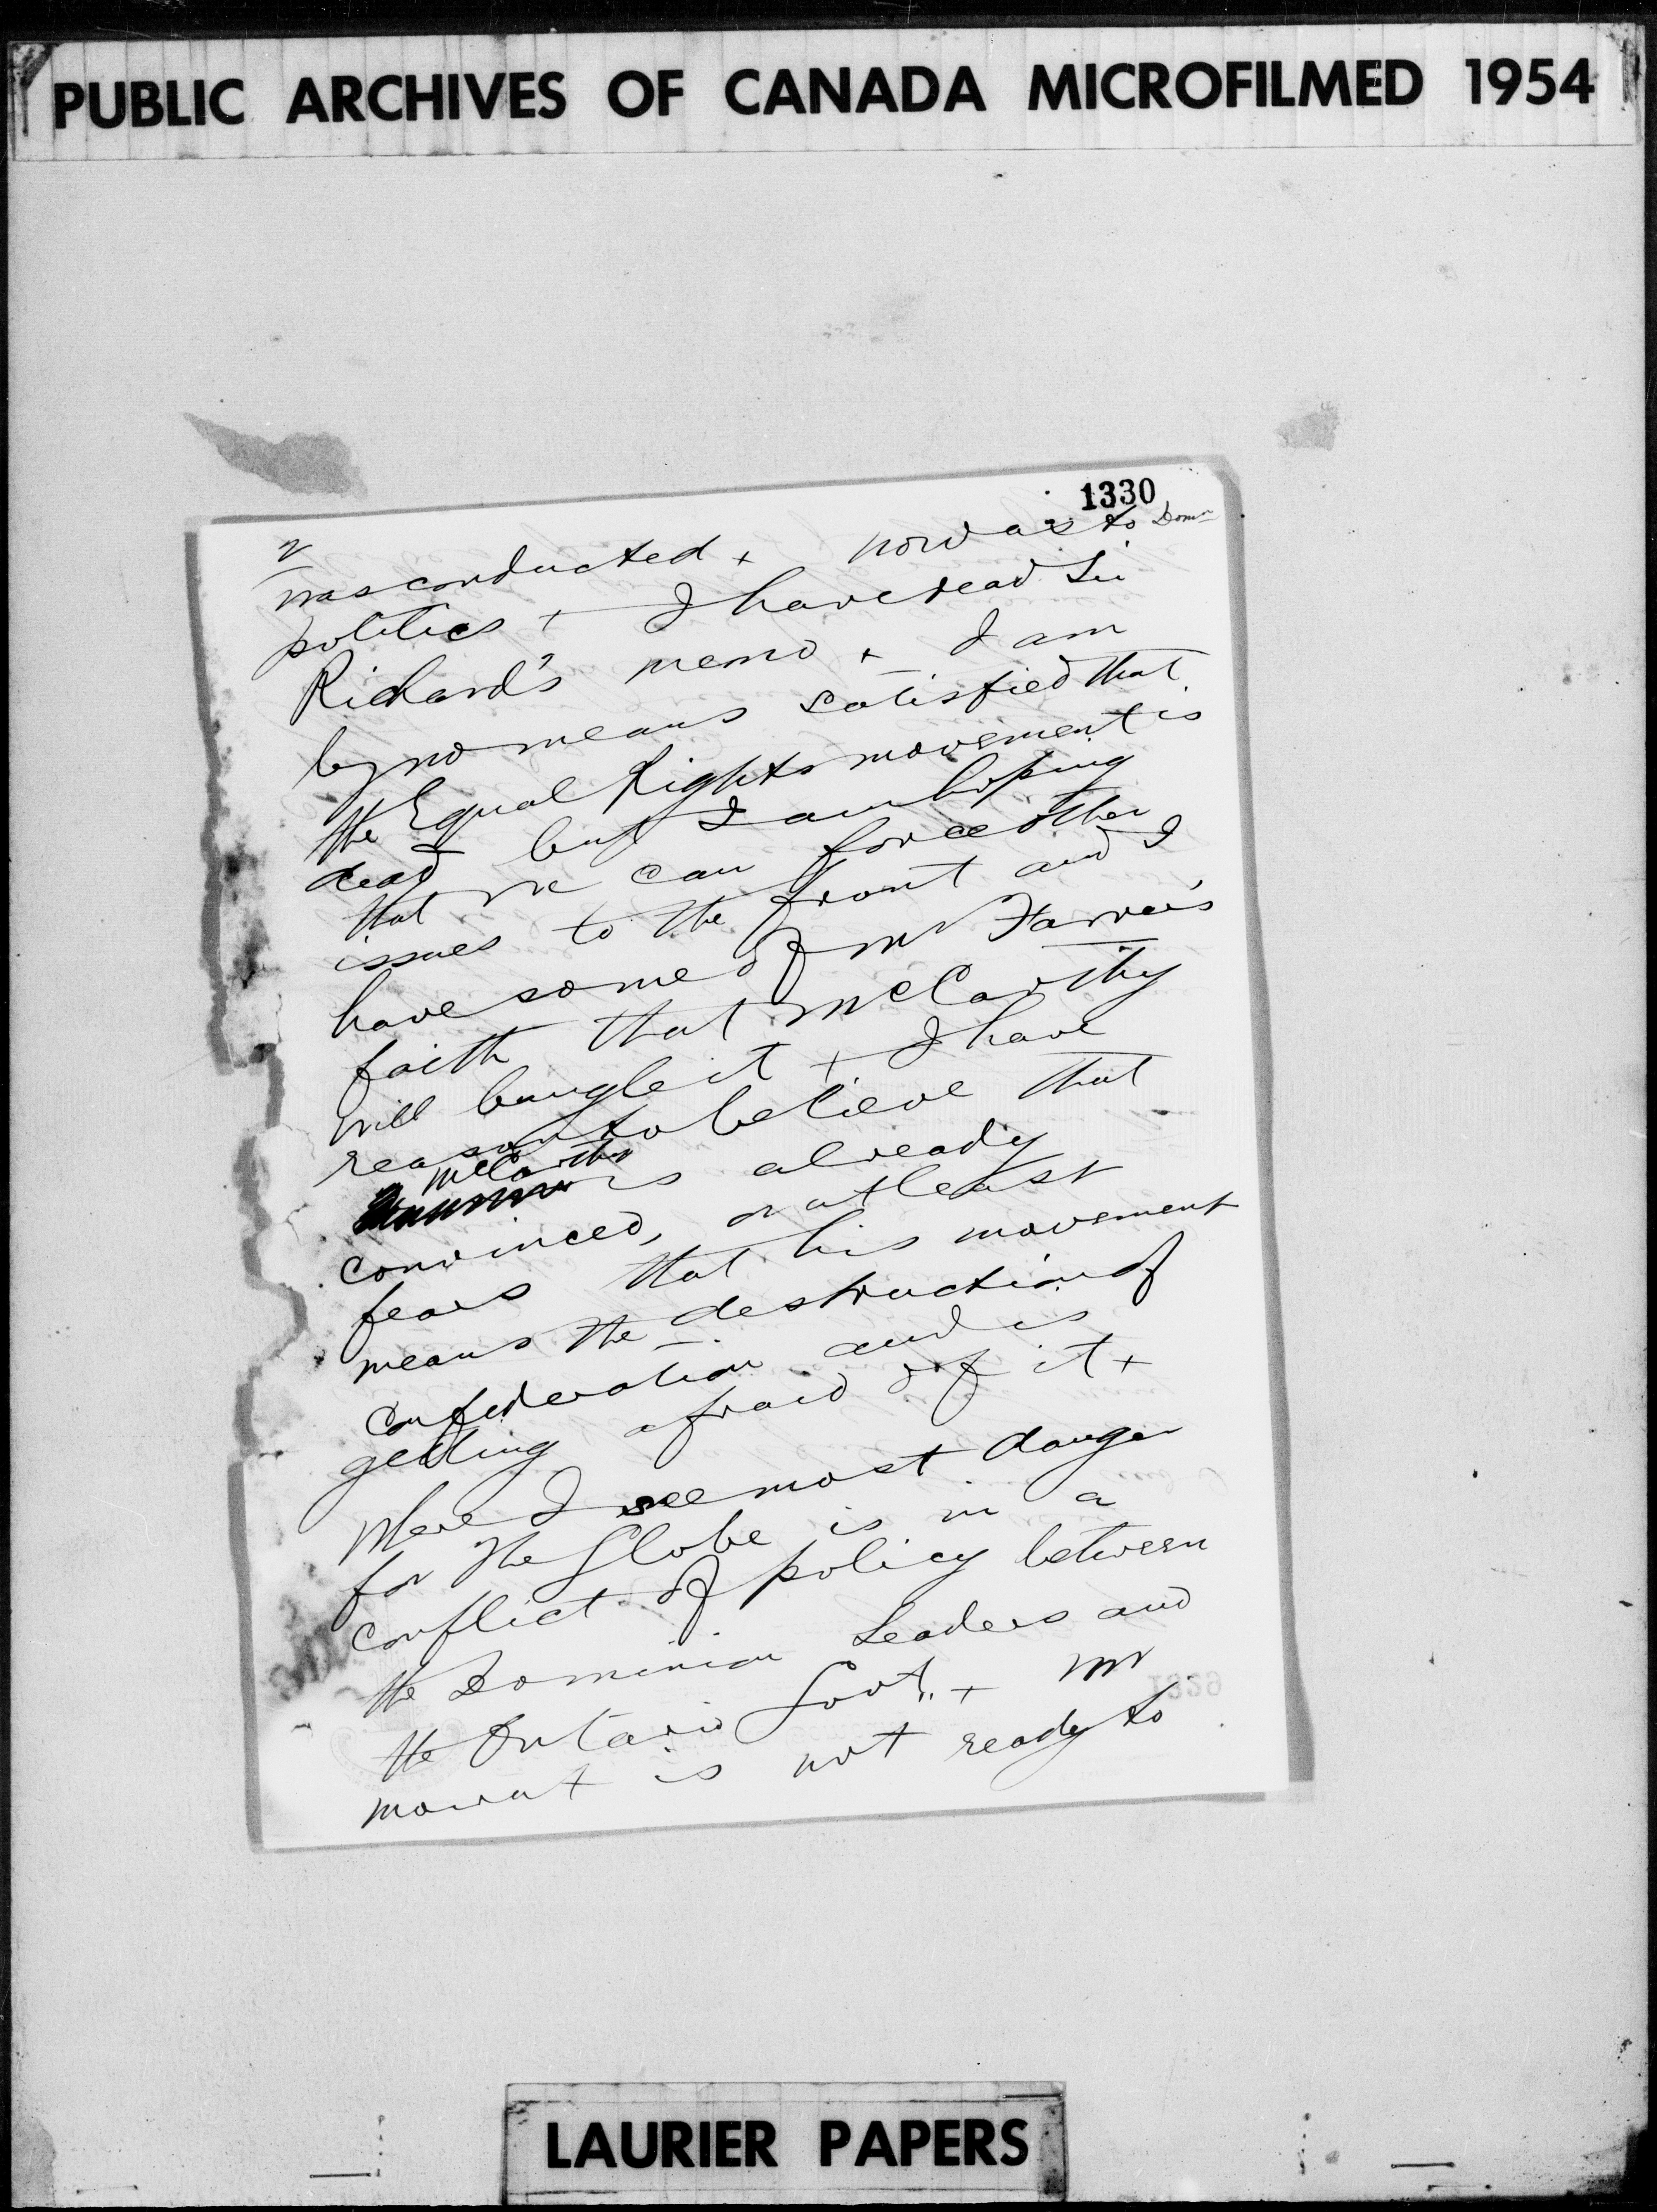 PUBLIC ARCHIVES OF CANADA MICROFILMED 1954
1330
2
was conducted + now as to Domn
politics + I have read Sir
Richard's memo + I am
by no means satisfied that
the Equal Rights movement is
dead but I am hoping
that we can force other
issues to the front and I
have some of Mr Farrer's
faith that McCarthy
will bungle it + I have
reason to believe that
McCarthy
is already
convinced, or at least
fears that his movement
means the destruction of
Confederation and is
getting afraid of it +
Where I see most danger
for the Globe is in a
conflict of policy between
the Dominion Leaders and
the Ontario Govt. + Mr
Mowat is not ready to
1329
LAURIER PAPERS